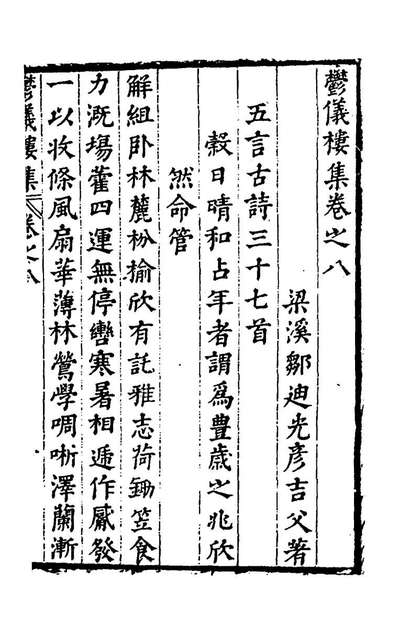 鬱儀樓集卷之八
梁溪鄒迪光彥吉父著
五言古詩三十七首
穀日晴和占年者謂爲豊歳之兆欣
然命管
解組卧林麓枌揄欣有託雅志荷鋤笠食
力溉場藿四運無停轡寒暑相逓作嚴發
一以收條風扇華薄林鶯學啁哳澤蘭漸
鬱儀樓集 卷之八